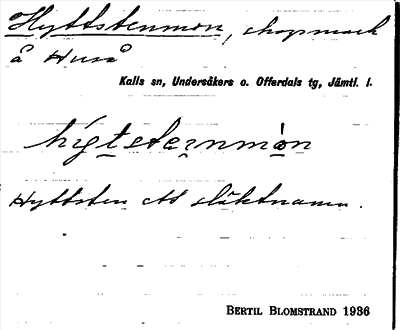 Hyttstenmon, 
å Huså
Kalls sn, Undersåkers o. Offerdals tg, Jämtl. l.
Hyttsten ett släktnamn.
BERTIL BLOMSTRAND 1936